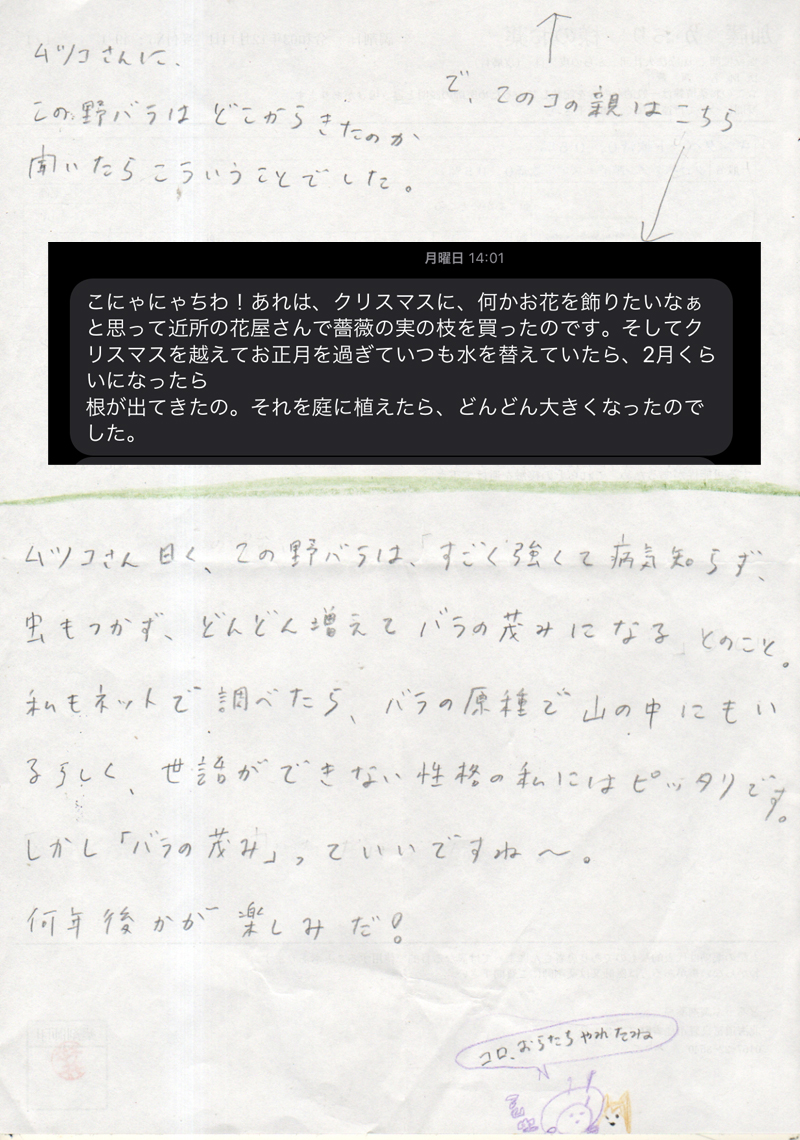 ムツコさんに、
この野バラは どこから きたのか
聞いたら こういうことでした。
で、このコの親は こちら
月曜日 14:01
こにゃにゃちわ！あれは、クリスマスに、何かお花を飾りたいなぁ
と思って近所の花屋さんで薔薇の実の枝を買ったのです。そしてク
リスマスを越えてお正月を過ぎていつも水を替えていたら、2月くら
いになったら
根が出てきたの。それを庭に植えたら、どんどん大きくなったので
した。
ムツコさん曰く、この野バラは、「すごく強くて病気知らず、
虫もつかず、どんどん増えて バラの茂みになる」とのこと。
私もネットで調べたら、バラの原種で山の中にもい
るらしく、世話ができない性格の私にはピッタリです。
しかし「バラの茂み」っていいですね〜。
何年後かが 楽しみだ！
コロ、おらたち